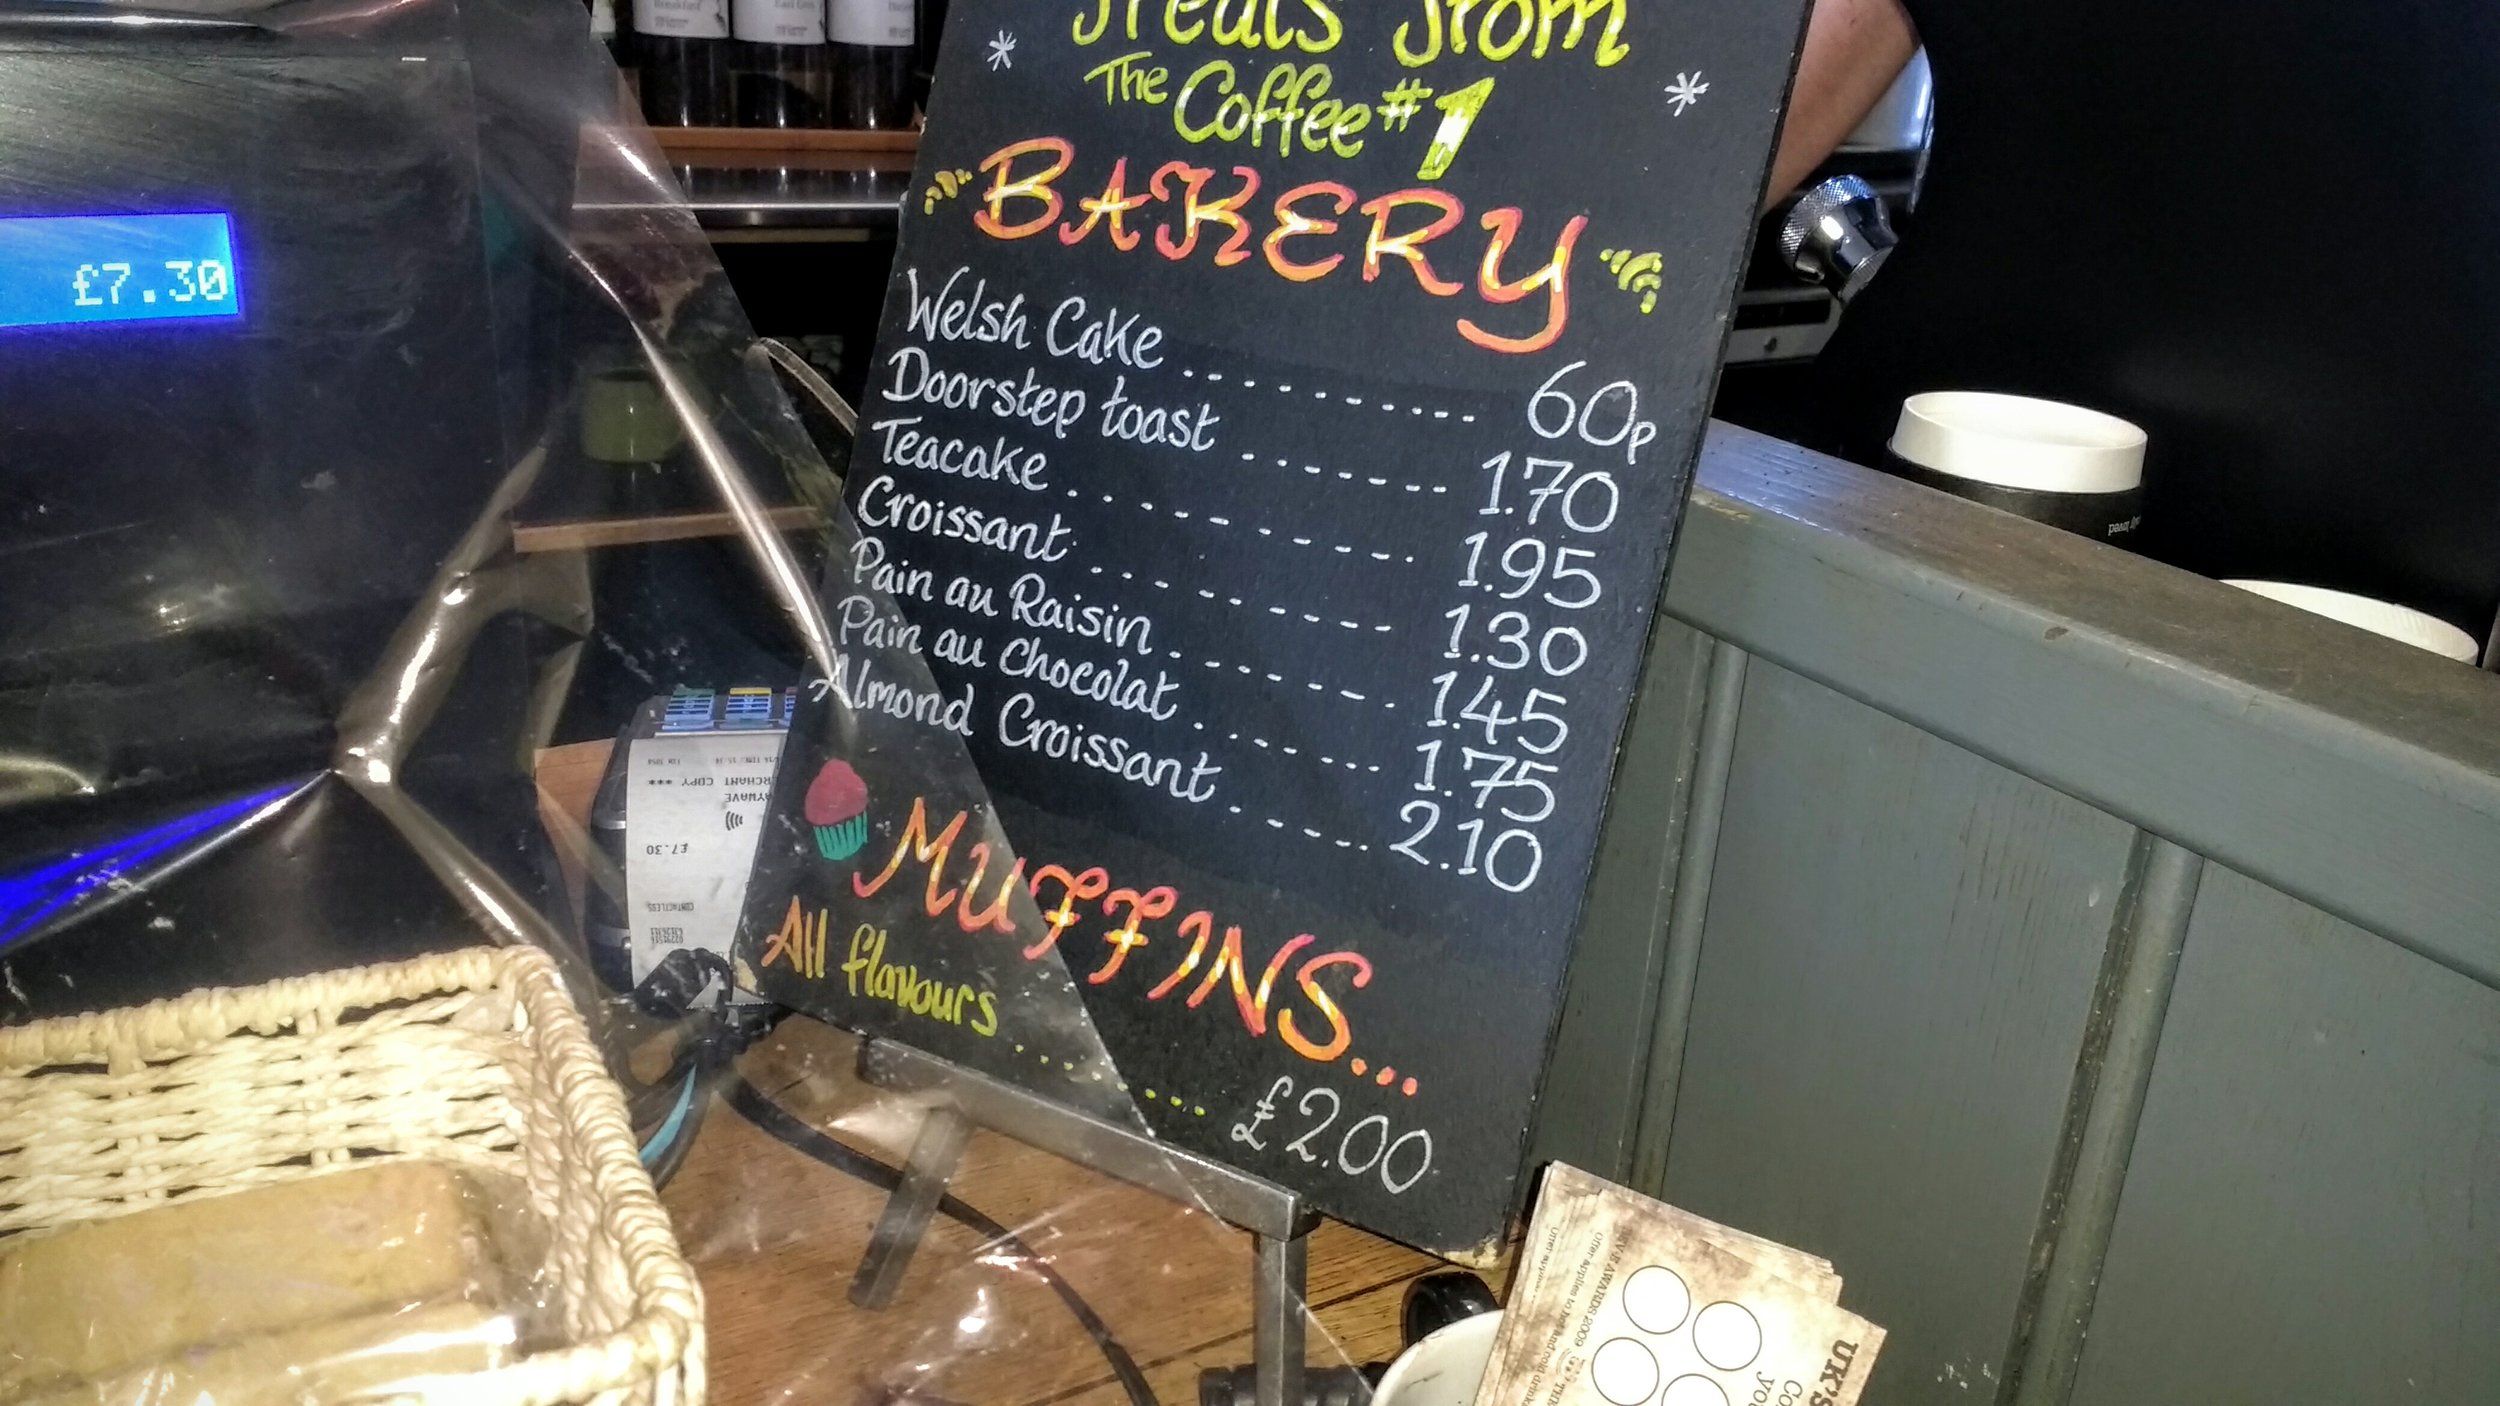 Treats from
The Coffee #1
BAKERY
Welsh Cake .......... 60p
Doorstep toast ....... 1.70
Teacake .......... 1.95
Croissant .......... 1.30
Pain au Raisin ....... 1.45
Pain au Chocolat ....... 1.75
Almond Croissant ...... 2.10
MUFFINS...
All flavours ........ £2.00
£7.30
COPY ***
£7.30
CONTACTLESS
Breakfast
loved
AWARDS 2009
Offer applies to hot and cold drinks
UK'S